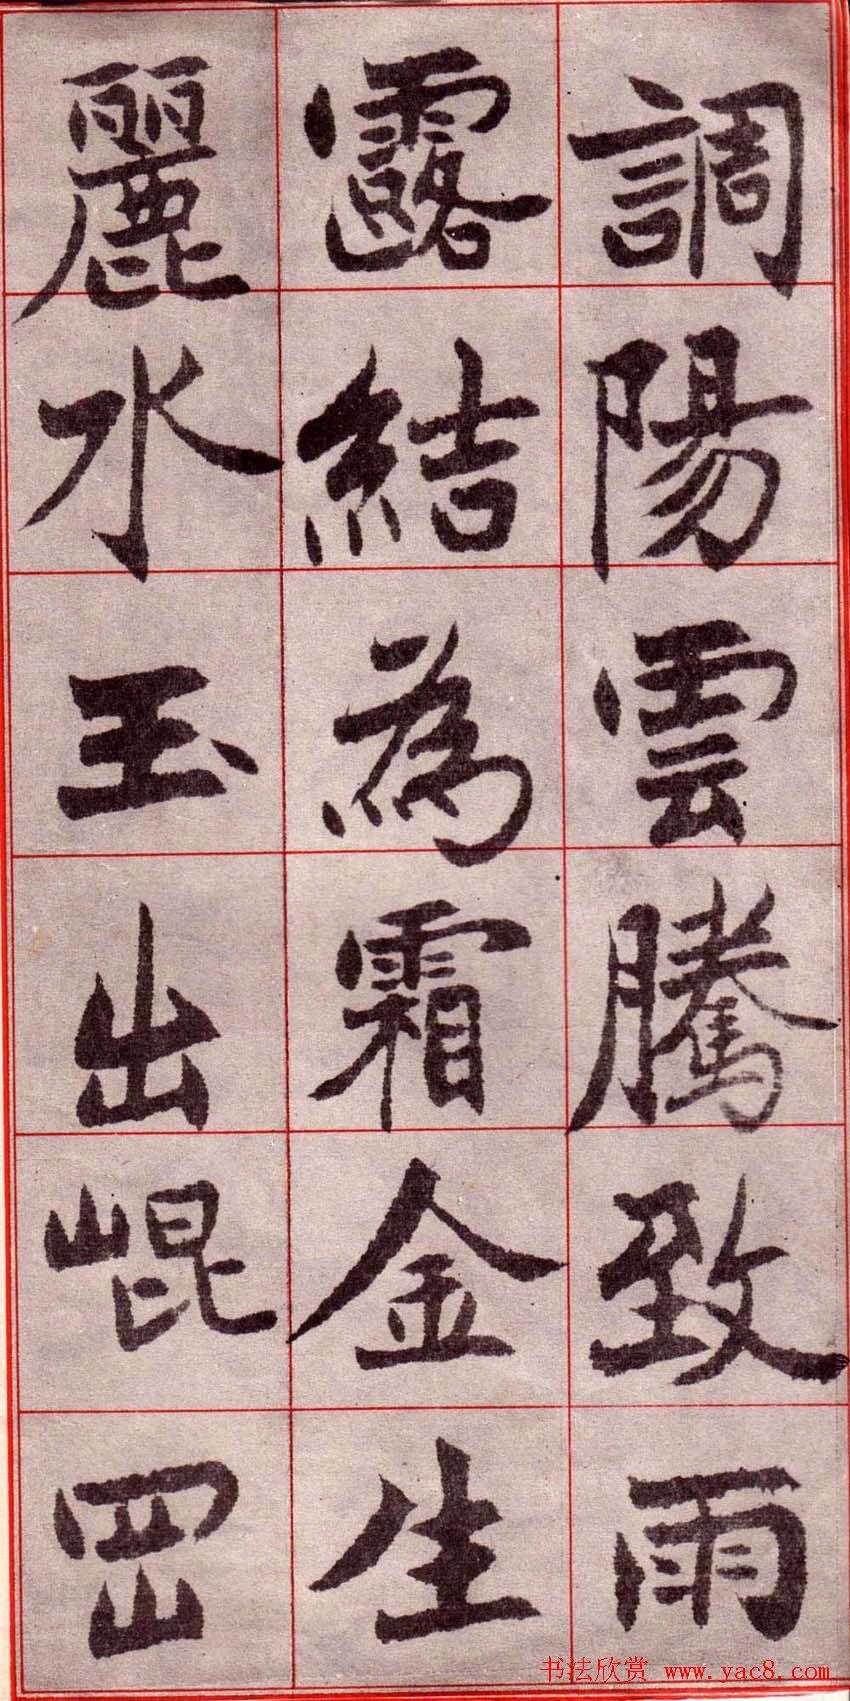 調陽雲騰致雨
露結為霜金生
麗水玉出崐罡
书法欣赏 www.yac8.com